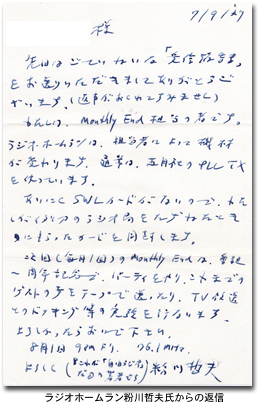 7/9/27
様
先日はごていねいな「受信報告書」
をお送りいただきましてありがとうご
ざいます。(返事がおくれてすみません)
わたしは、Monthly End 担当の者です。
ラジオ・ホームランは、担当者によって機材
が変わります。通常は、五月社の PLL TX
を使っています。
あいにく SWL カードがないので、わた
しが
のラジオ局をたずねたとき
にもらったカードを同封します。
次回(毎月1回)の Monthly End は、番組
一周年記念で、パーティをやり、これまでの
ゲストの声をテープで送ったり、TV放送
とのドッキング等の実験を行ないます。
よろしかったらおいで下さい。
8月1日 9PMより、76.1MHz.
よろしく
粉川哲夫
ラジオホームラン粉川哲夫氏からの返信